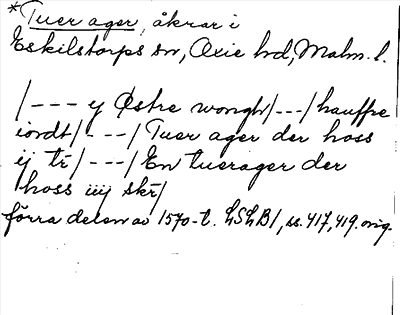 *Tuer ager, åkrar i
Eskilstorps sn, Oxie hd, Malm. l.
/--- y Østre wongh/---/hauffre
iordt/---/Tuer ager der hoss
ij tr/---/En tuerager der
hoss iiij skr/
förra delen av 1570-t. LSLB1, ss. 417, 419. orig.